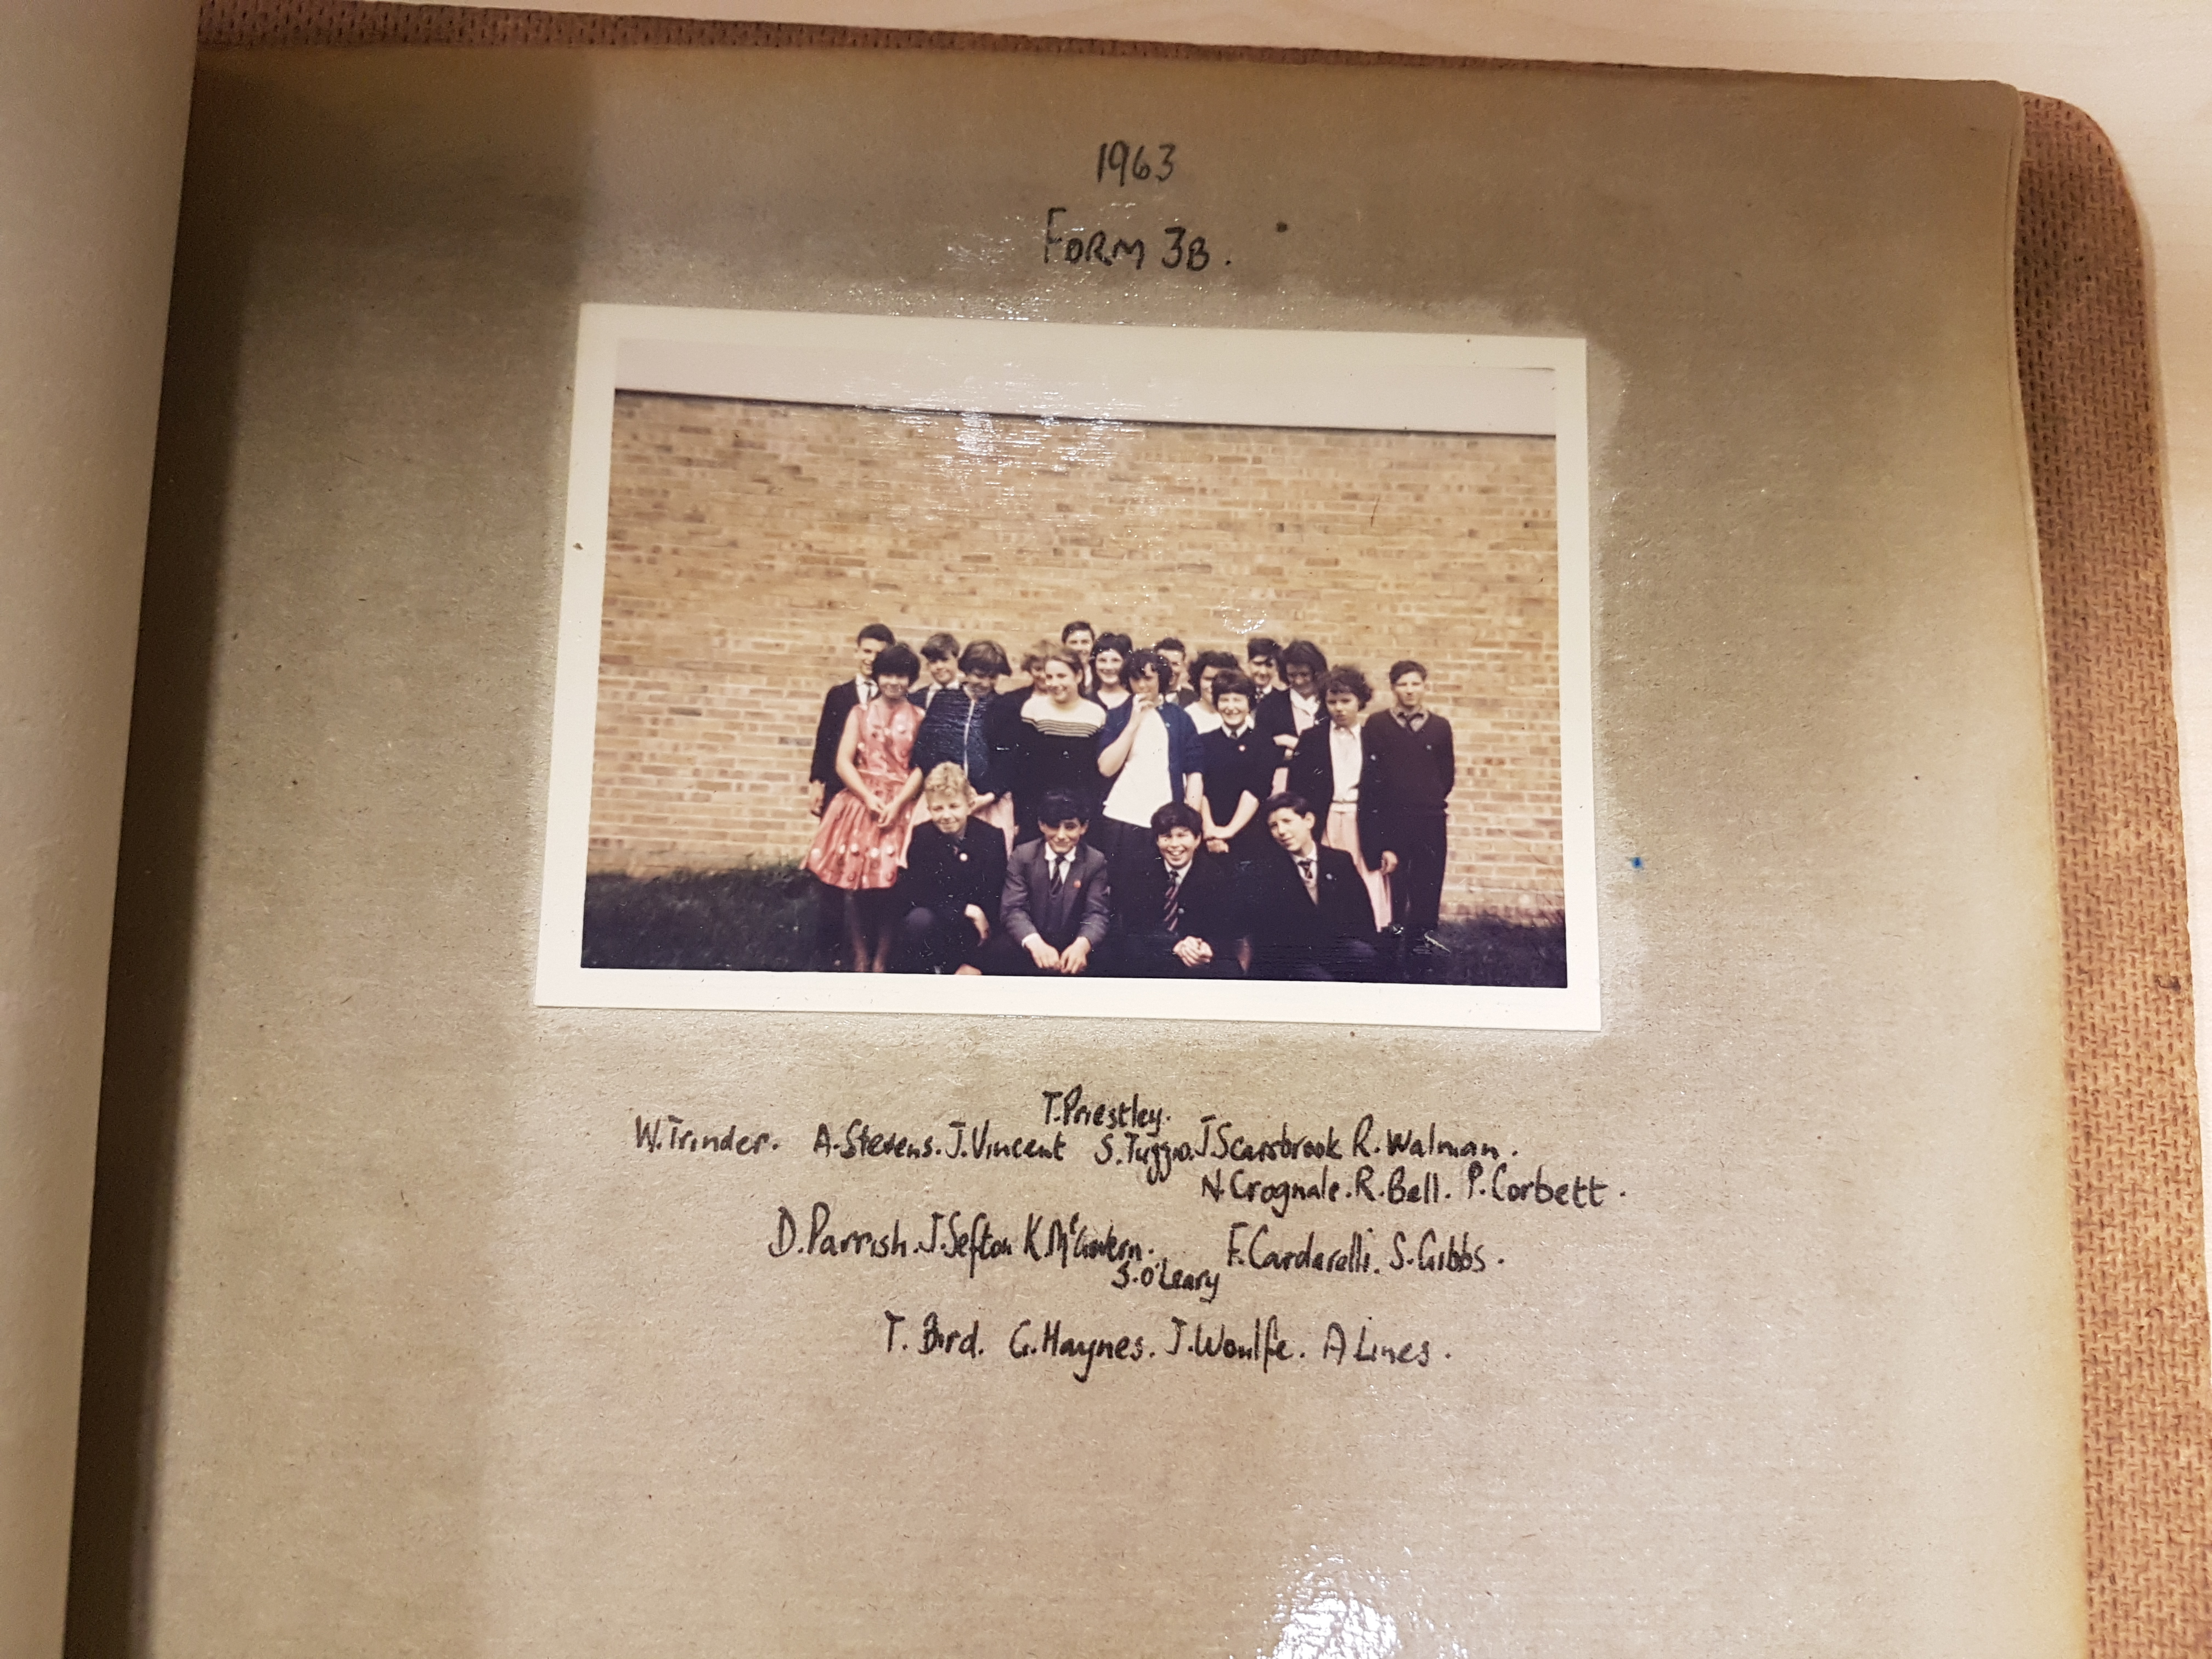 1963
FORM 3B.
T. Priestley.
W. Trinder. A. Stevens. J. Vincent S. Tuzzio. J Scarsbrook R. Walman.
N. Crognale. R. Bell. P. Corbett.
D. Parrish. J. Sefton K. McGovern. F. Cardarelli. S. Gibbs.
S. O'Leary
T. Bird. G. Haynes. J. Woulfe. A Lines.